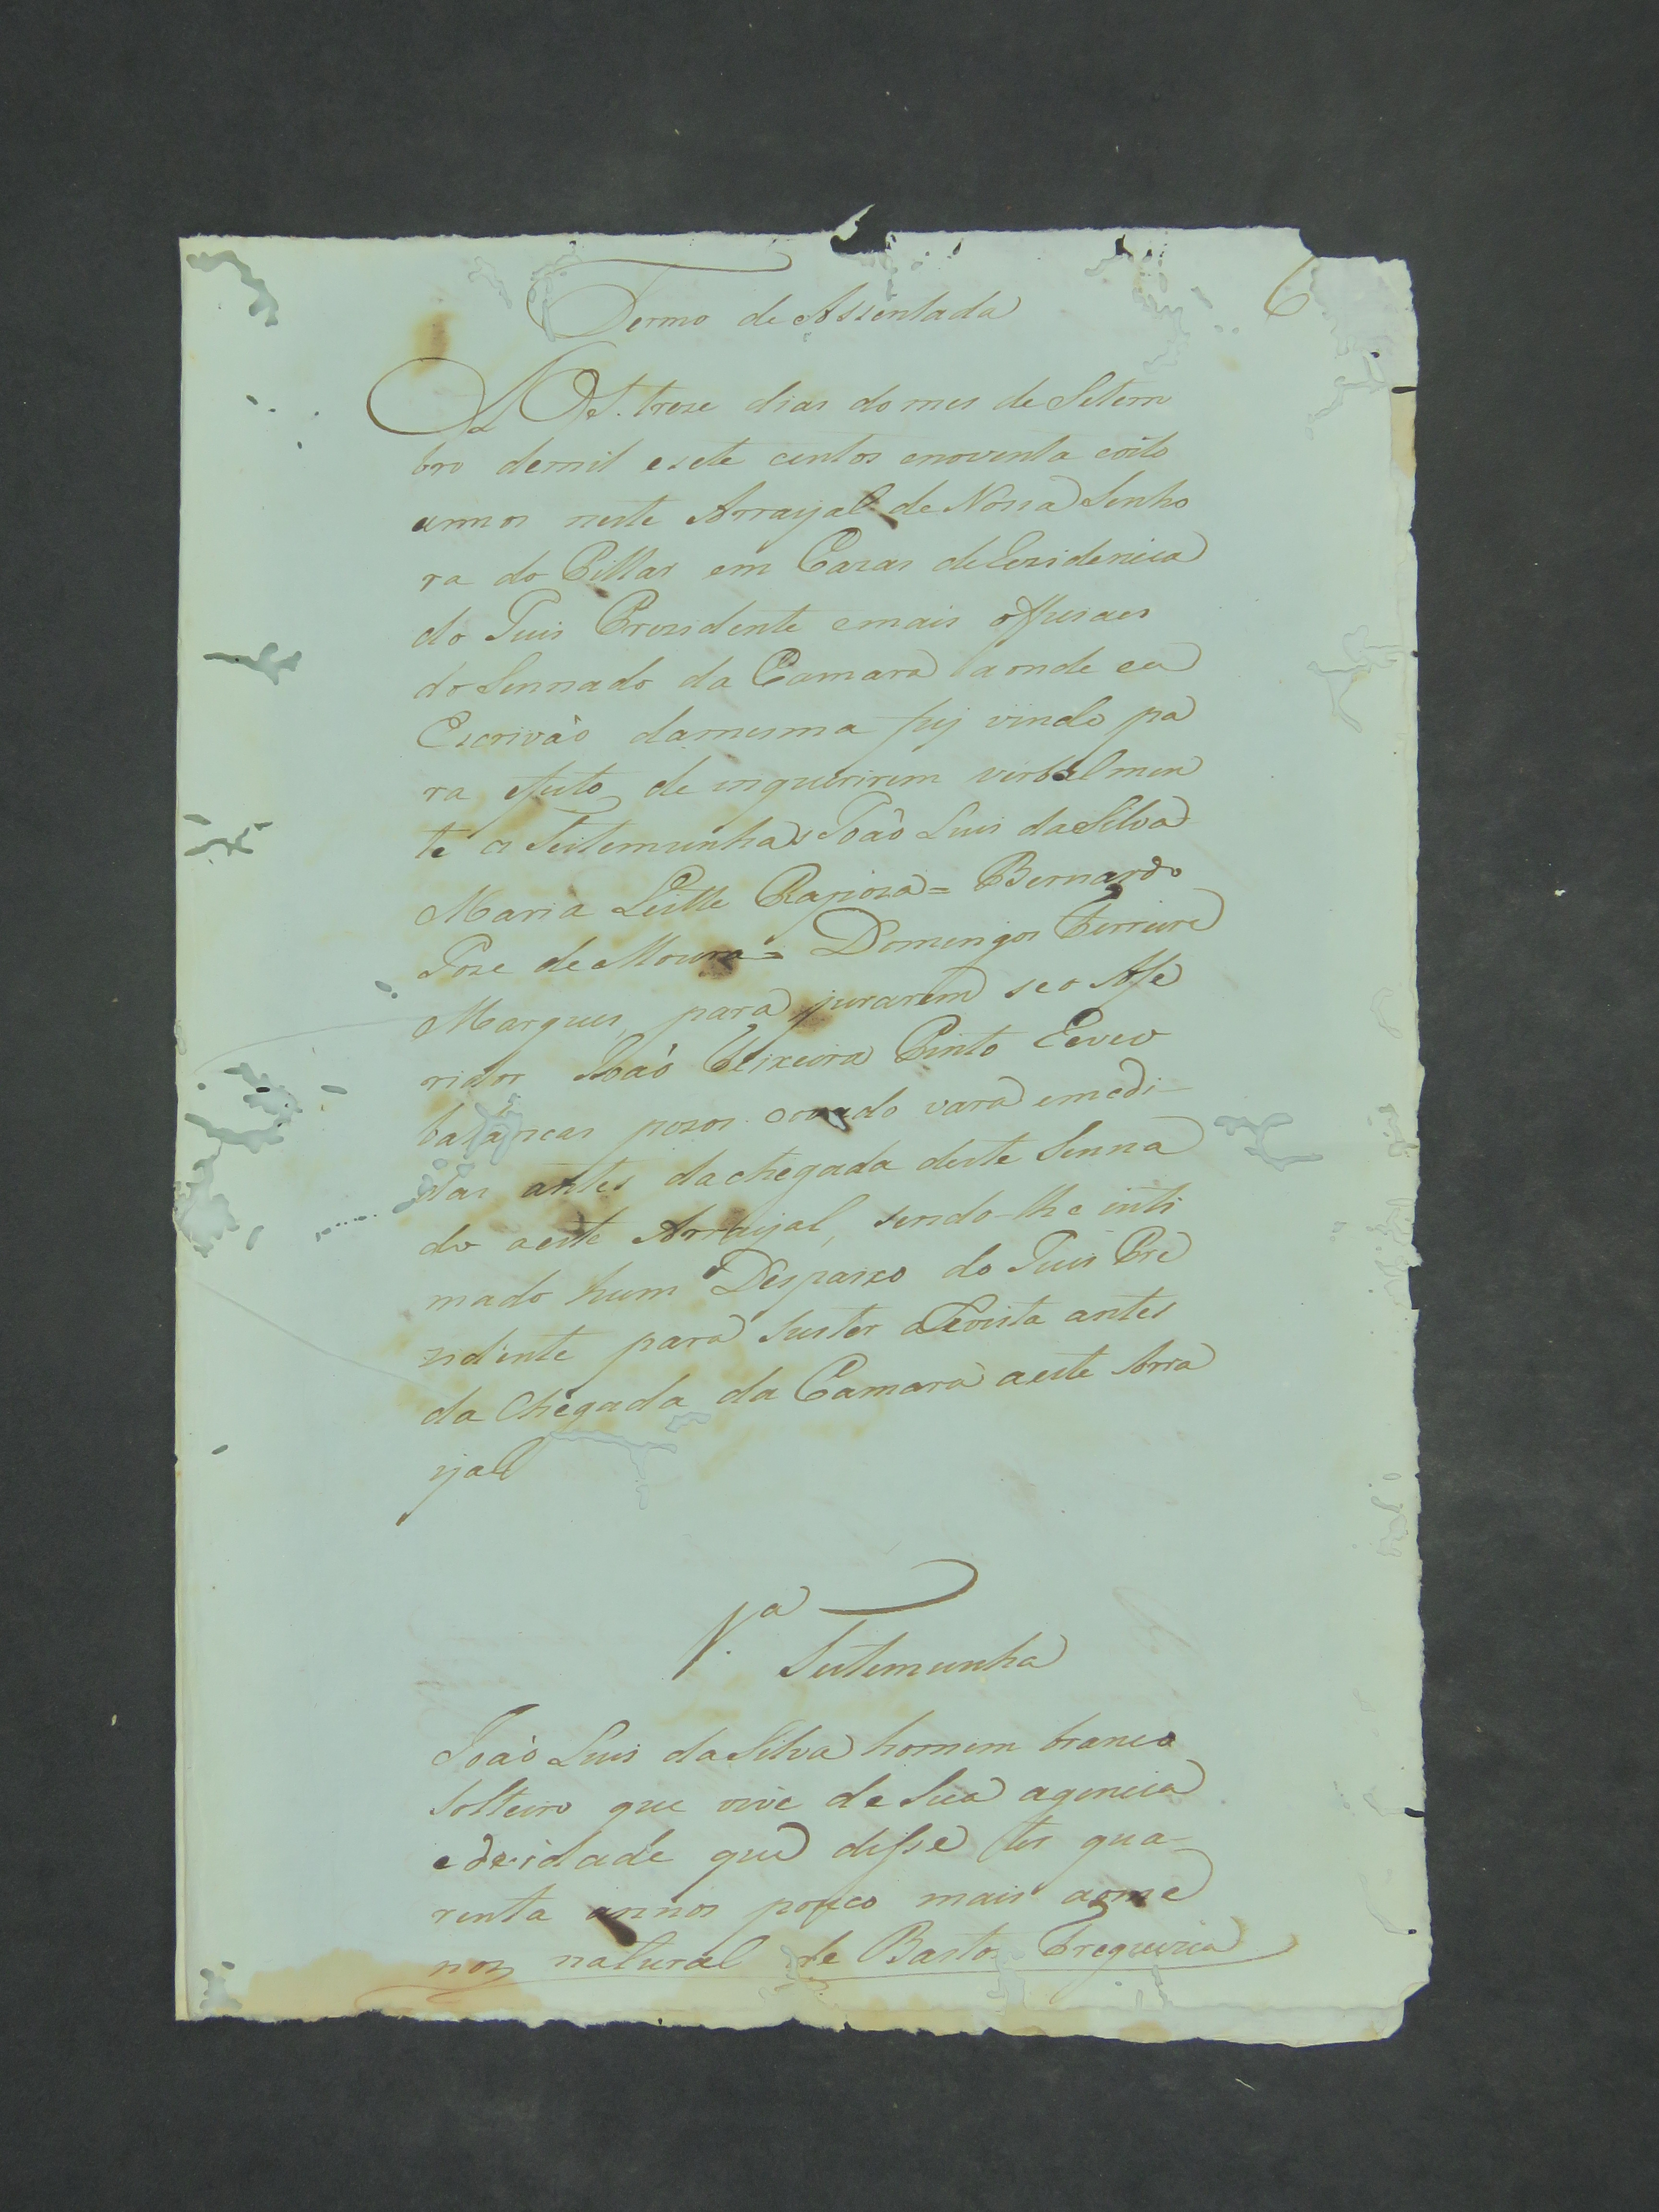 6
Termo de Assentada
AOS. treze dias do mes de Setem
bro demil esete centos enoventa eoito
annos neste Arrayal de Nossa Senho
ra do Pillar em Cazas deRezidencia
do Juis Prezidente emais offisaes
do Sennado da Camara aonde eu
Escrivaõ damesma fuj vindo pa
ra efeito de inquerirem verbalmen
te as Testemunhas Joaõ Luis daSilva
Maria Leitte Rapoza = Bernardo
Joze de Moura = Domingos Ferreira
Marques, para jurarem se o Afe
ridor Joaõ Teixeira Pinto Reveo
balanças pezos covado vara emedi-
das antes dachegada deste Senna
do aeste Arrayal, sendo-lhe inti
mado hum Despaxo do Juis Pre
zidente para suster aRevista antes
da Chegada da Camara aeste Arra
yal
1.ª
Testemunha
Joaõ Luis daSilva homem branco
solteiro que vive de Sua agencia
edeidade que disse ter qua-
renta annos pouco mais aome
nos natural de Basto Freguezia